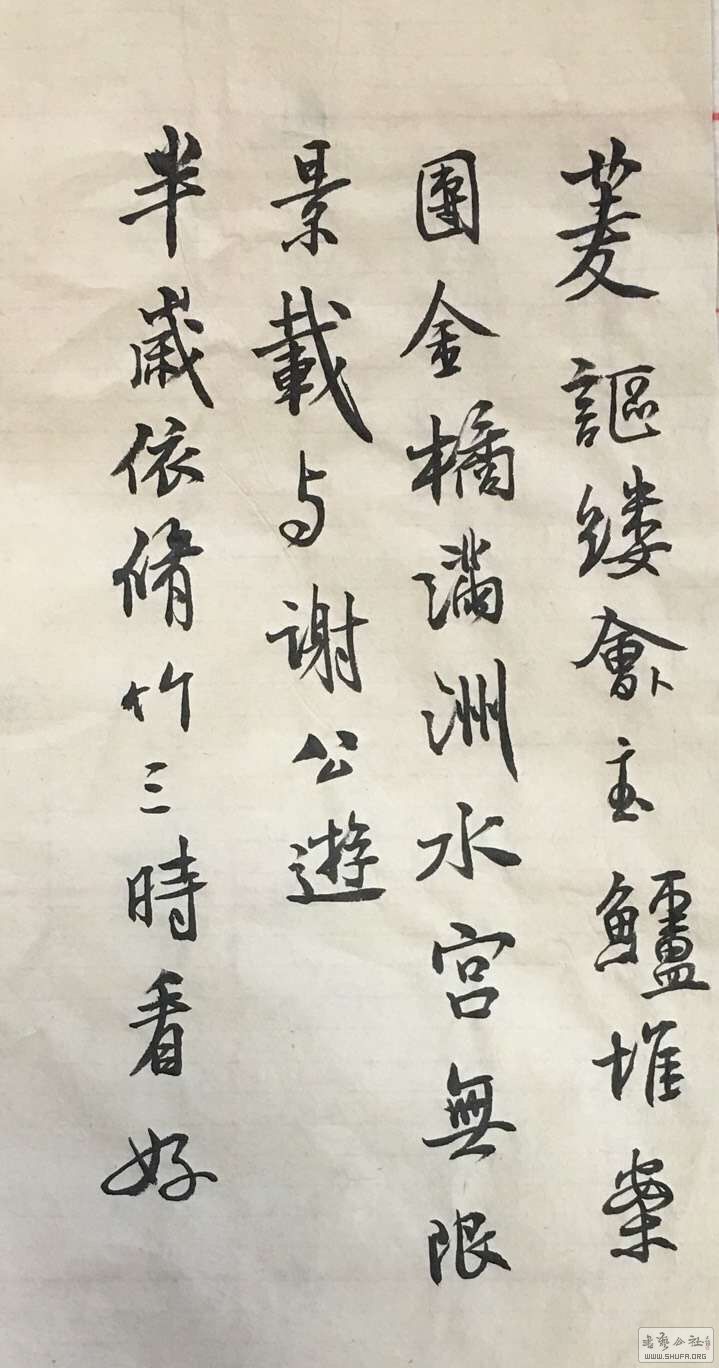 菱謳縷會卜玉鱸堆案
團金橘滿洲水宮無限
景載与謝公遊
半歲依脩竹三時看好
書藝公社
WWW.SHUFA.ORG